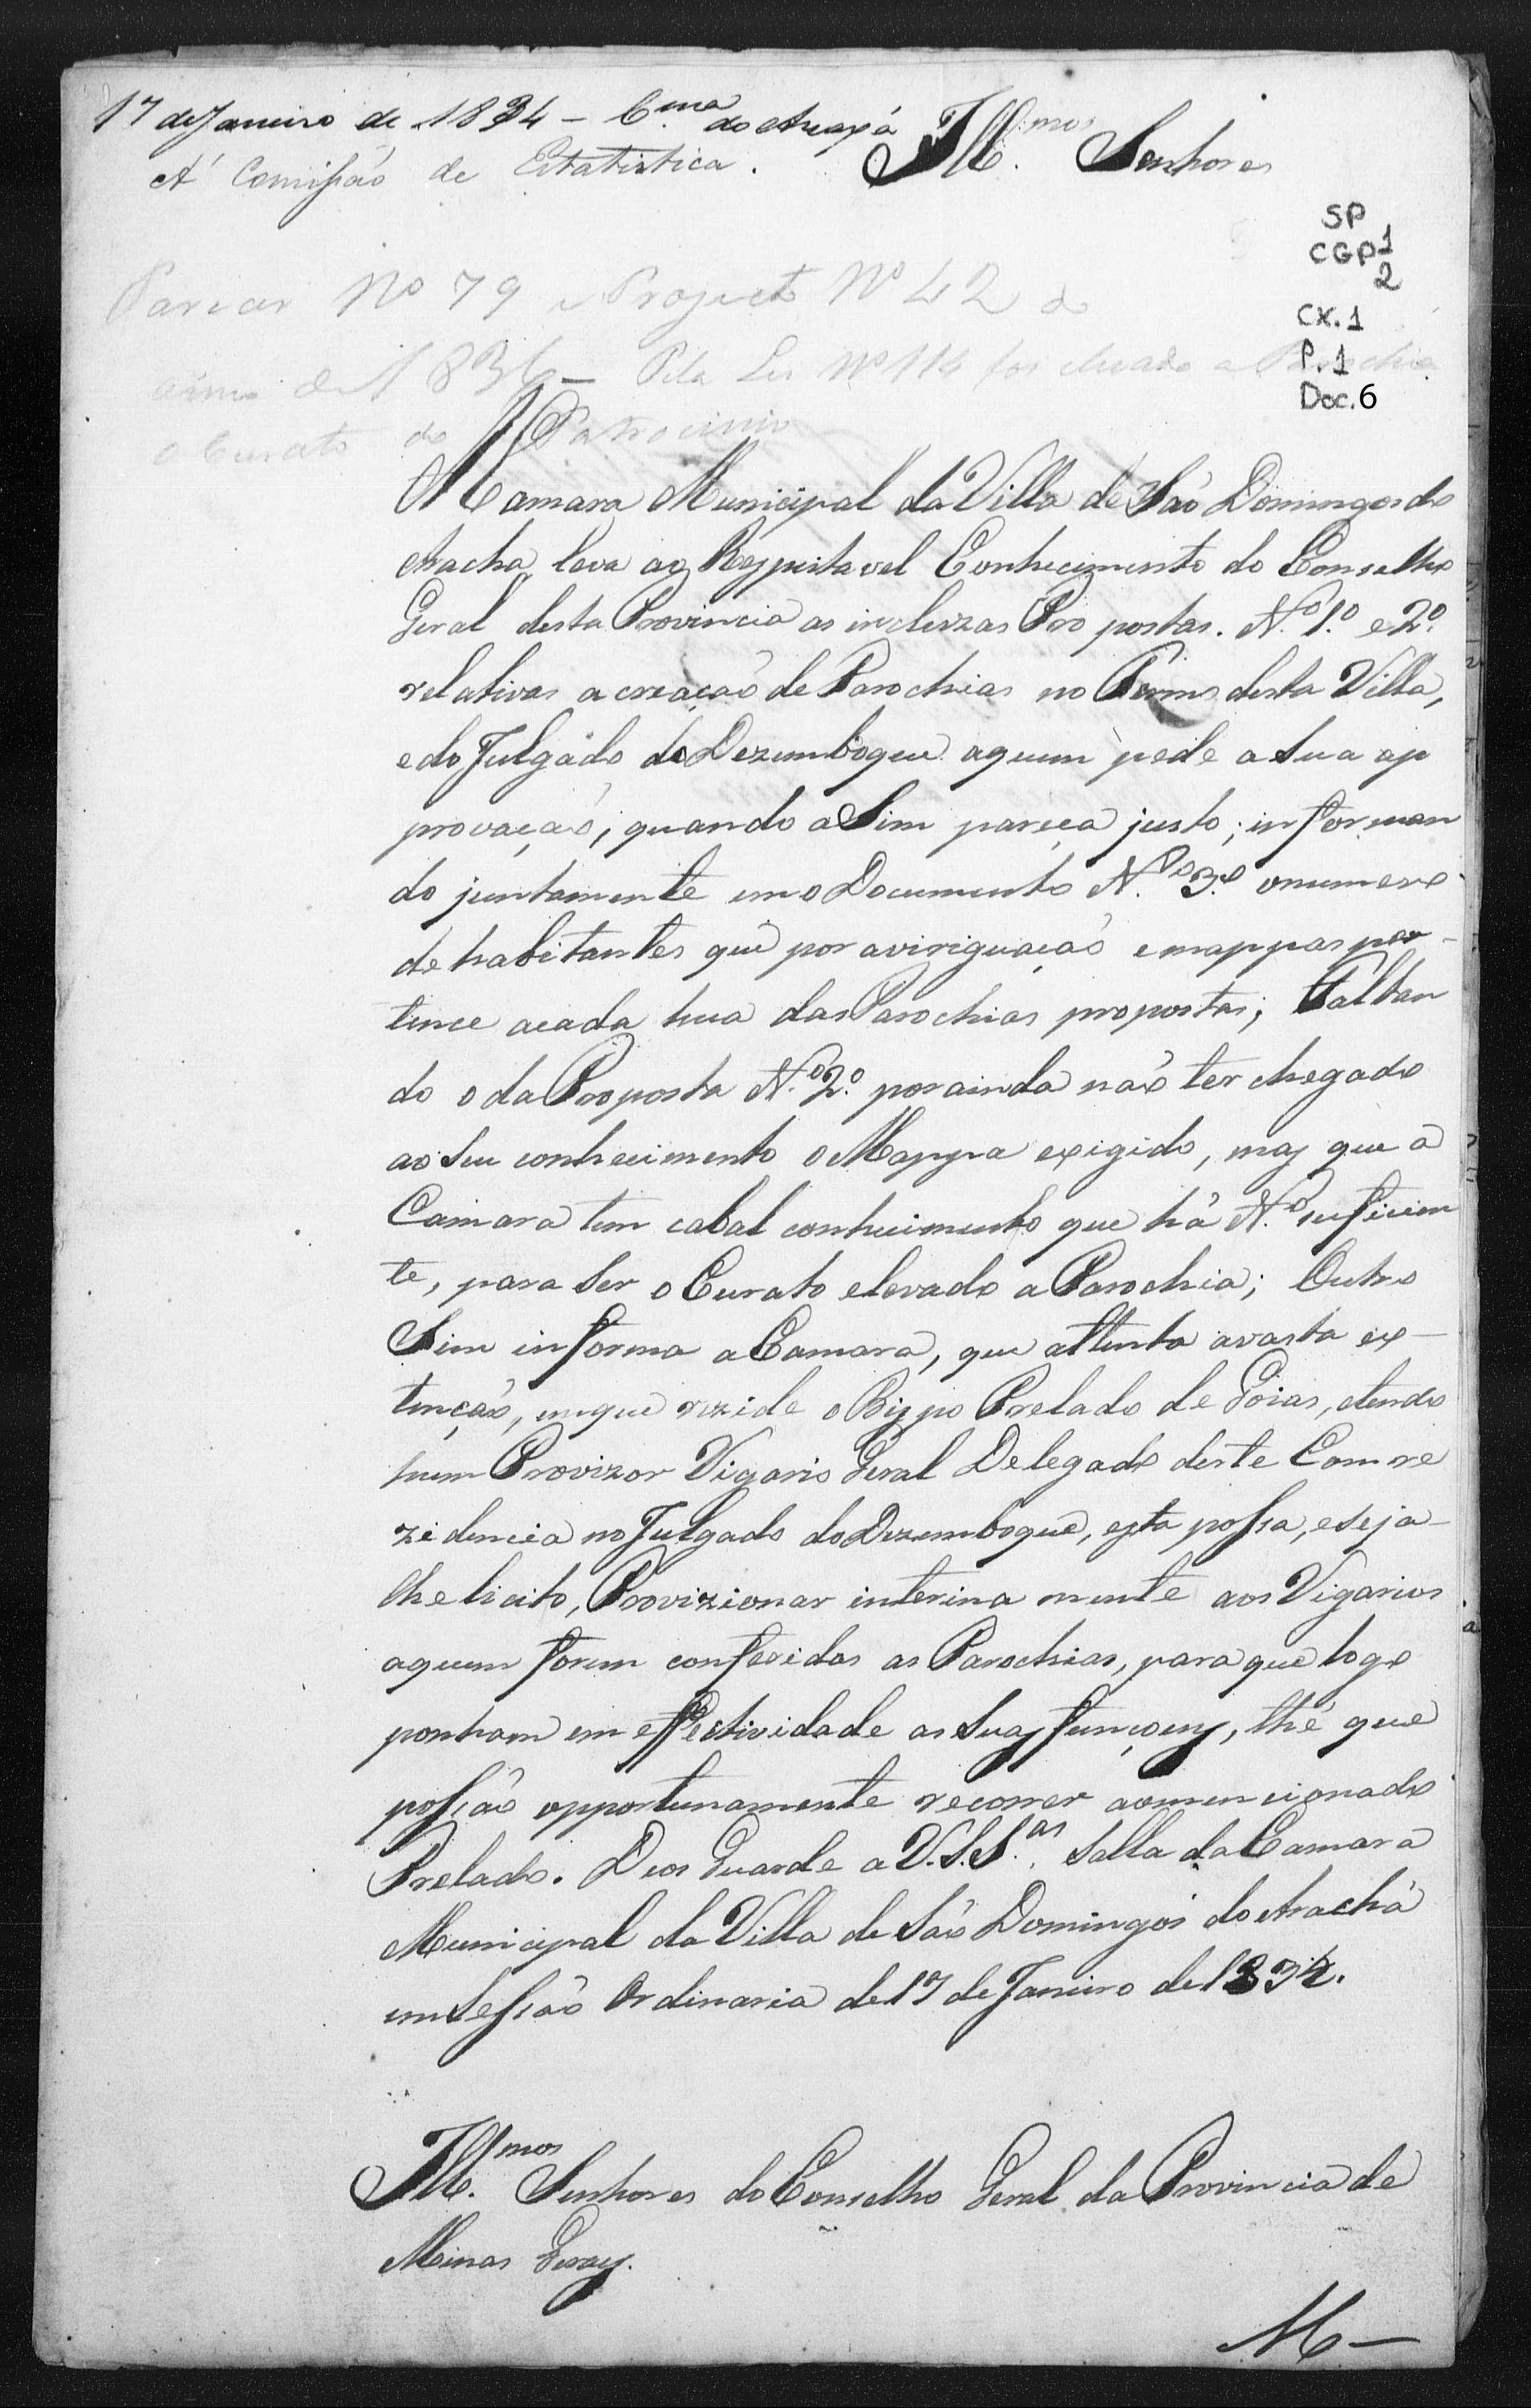 17 de Janeiro de 1834 - C.ma do Araxá
Ill.mos Senhores
A' Comissão de Estatistica.
SP
CGP 1
2
CX.1
P.1
Doc.6
Parecer Nº 79 e Projecto Nº 42 do
anno de 1836 - Pela Lei Nº 114 foi elevado a Parochia
o Curato do Patrocinio
A Camara Municipal da Villa de São Domingos do
Aracha, leva ao Respeitavel Conhecimento do Conselho
Geral desta Provincia as inclerzas Pro postas. N.º 1.º e 2º.
relativas a creação de Parochias no Termo desta Villa,
e do Julgado do Dezemboque aquem pede a sua ap
provação, quando aSim pareça justo; informan
do juntamente emo Documento N.º 3.º onumero
de habitantes que por aviriguação emappas per-
tence acada hua das Parochias propostas; Faltan
do o da Proposta N.º 2.º por ainda não ter chegado
ao seu conhecimento o Mappa exigido, mas que a
Camara tem cabal conhecimento que há N.º suficien
te, para ser o Curato elevado a Parochia; Outro
Sim informa a Camara, que attenta avasta ex-
tenção, emque rezide o Bispo Prelado de Goias, etendo
hum Provizor Vigario Geral Delegado deste Com re
zidencia no Julgado do Dezemboque, esta possa, eseja-
lhe licito, Provizionar interina mente aos Vigarios
aquem forem conferidas as Parochias, para que logo
ponham em effectividade as Suas funçoens, thé que
possão opportunamente recorrer aomencionado
Prelado. Deos Guarde a V.S.S.as. Salla da Camara
Municipal da Villa de São Domingos do Arachá
em Sessão Ordinaria de 17 de Janeiro de 1834.
Ill.mos Senhores do Conselho Geral da Provincia de
Minas Geraes.